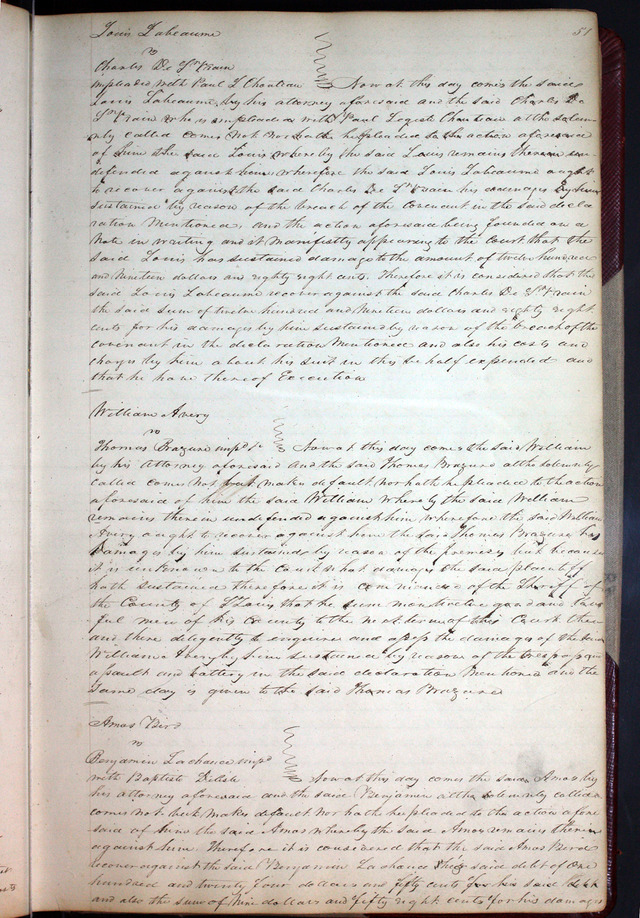 51
Louis Labeaume
vs
Charles De St Vrain
impleaded with Paul L Chouteau Now at this day comes the said
Louis Labeaume by his attorney aforesaid and the said Charles De
St Vrain who is impleaded with Paul Legeste Chouteau altho solem
nly called comes not nor hath he pleaded to the action aforesaid
of him the said Louis whereby the said Louis remains therein un
defended against him wherefore the said Louis Labeaume ought
to recover against the said Charles De St Vrain his damages by him
sustained by reason of the breach of the covenant in the said decla
ration mentioned, and the action aforesaid being founded on a
Note in writing and it manifestly appearing to the court that the
said Louis has sustained damage to the amount of twelve hundred
and nineteen dollars and eighty eight cents. Therefore it is considered that the
said Louis Labeaume recover against the said Charles De St Vrain
the said sum of twelve hundred and nineteen dollars and eighty eight
cents for his damages by him sustained by reason of the breach of the
covenant in the declaration mentioned and also his costs and
charges by him about his suit in this behalf expended and
that he have thereof Execution
William Avery
vs
Thomas Brazure impd &c Now at this day comes the said William
by his Attorney aforesaid and the said Thomas Brazure altho solemnly
called comes not but makes default nor hath he pleaded to the action
aforesaid of him the said William whereby the said William
remains therein undefended against him wherefore the said William
Avery ought to recover against him the said Thomas Brazure his
damages by him sustained by reason of the premises but because
it is unknown to the Court what damages the said plaintiff
hath sustained therefore it is commanded of the Sheriff of
the County of St Louis that he summons twelve good and law
ful men of his county to the next term of this Court then
and there diligently to enquire and assess the damages of the said
William Avery by him sustained by reason of the trespass
assault and battery in the said declaration mentioned and the
same day is given to the said Thomas Brazure
Amos Bird
vs
Benjamin Lachance impd
with Baptiste Delisle Now at this day comes the said Amos by
his attorney aforesaid and the said Benjamin altho solemnly called
comes not but makes default nor hath he pleaded to the action afore
said of him the said Amos whereby the said Amos remains therein
against him. Therefore it is considered that the said Amos Bird
recover against the said Benjamin Lachance his said debt of One
hundred and twenty four dollars and fifty cents for his said debt
and also the sum of Nine dollars and fifty eight cents for his damages